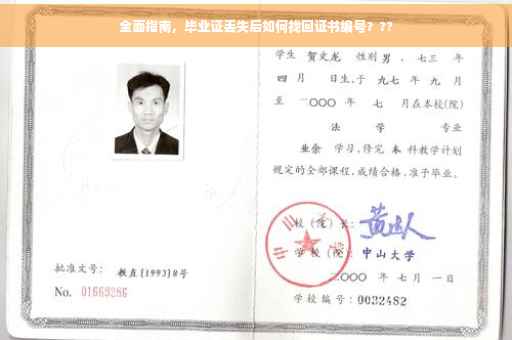 全面指南，毕业证丢失后如何找回证书编号？??
学生 贺文龙 性别 男 、七三 年
四 月 日生，于 九七 年 九 月
至 二〇〇〇 年 七 月在本校(院)
法 学 专业
业余 学习，修完 本 科教学计划
规定的全部课程，成绩合格，准予毕业。
校（院）长：
学校（院）：中山大学
二〇〇〇 年 七 月 一 日
批准文号： 教直[1993]8号
No. 01669286
学校编号：0032482